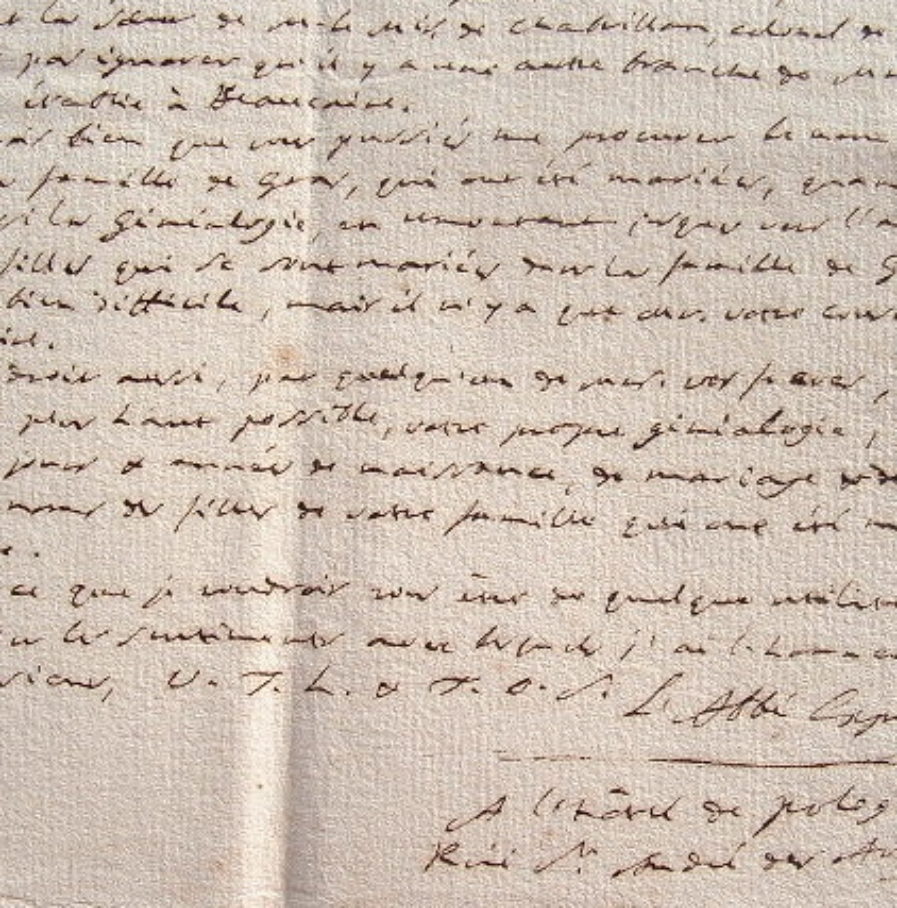 la Sœur de M. le Mis. de Chatillon, colonel de
pas ignorer qu'il y a une autre branche de
établie à Beaucaire.
bien que vous pussiés me procurer le nom
famille de Gras, qui ont été mariées,
si la Généalogie, en remontant jusques vers l'
filles qui se sont mariées dans la famille de G
bien difficile, mais il n'y a que vous. votre
aussi, par quelqu'un de vous faver,
plus haut possible, votre propre généalogie,
jour & année de naissance, de mariage & de
noms des filles de votre famille qui ont été
ce que je voudrois vous être de quelque utilité
les sentimens avec lesquels j'ai l'honneur
V. T. h. & T. O. S. L'Abbé
A l'hôtel de polog
Rüe St. André des